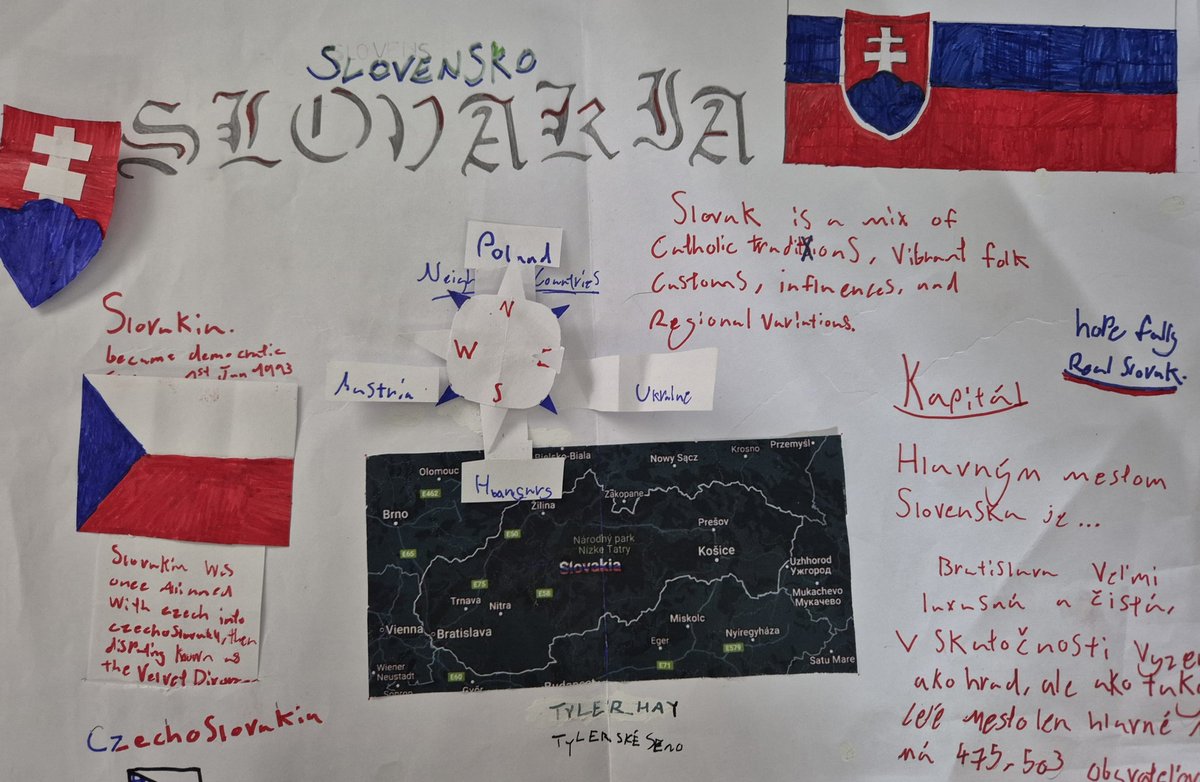 SLOVENSKO
SLOVAKIA
Poland
Neigh Countries
N
W
E
S
Austria
Ukraine
Slovak is a mix of
Catholic traditions, Vibrant folk
Customs, influences, and
Regional Variations.
hope fully
Real Slovak.
Slovakia.
became democratic
1st Jan 1993
Slovakia was
once Alinned
With czech into
then
Known as
the Velvet
CzechoSlovakia
Bielsko-Biala
Nowy Sącz
Krosno
Przemyśl
Olomouc
E462
Zakopane
Brno
Žilina
E50
Prešov
Národný park
Nízke Tatry
Košice
E65
Slovakia
Uzhhorod
Ужгород
E75
E58
Trnava
Nitra
Mukachevo
Мукачево
Miskolc
Vienna
Bratislava
Eger
Nyíregyháza
E579
Wiener
Neustadt
E71
Satu Mare
E60
Sopron
Győr
Budapest
TYLER HAY
TYLERSKÉ SENO
Kapitál
Hlavným mestom
Slovenska je...
Bratislava Veľmi
luxusná a čistá,
V Skutočnosti
ako hrad, ale ako
mesto len hlavné
má 475,503